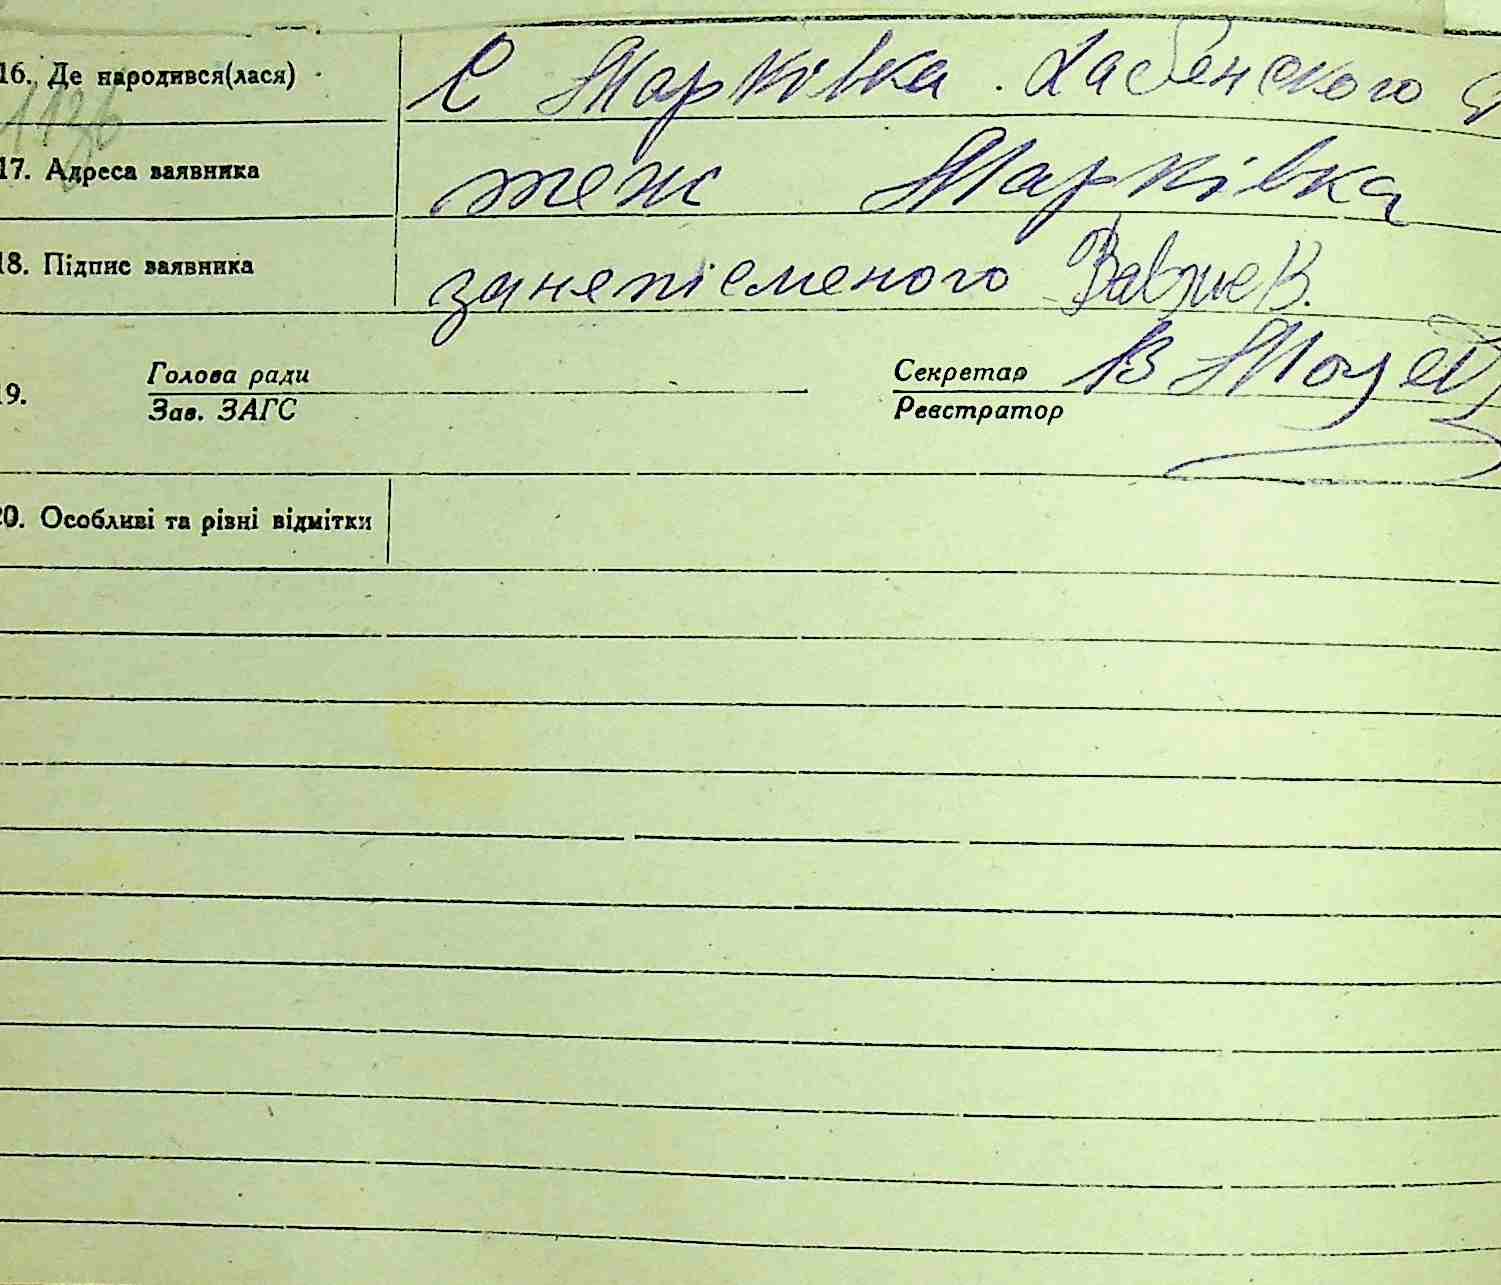 16. Де народився(лася) С Марківка. Лабенского
1136
17. Адреса заявника теж Марківка
18. Підпис заявника занепісменого
19. Голова ради Секретар В
Зав. ЗАГС Реєстратор
20. Особливі та рівні відмітки